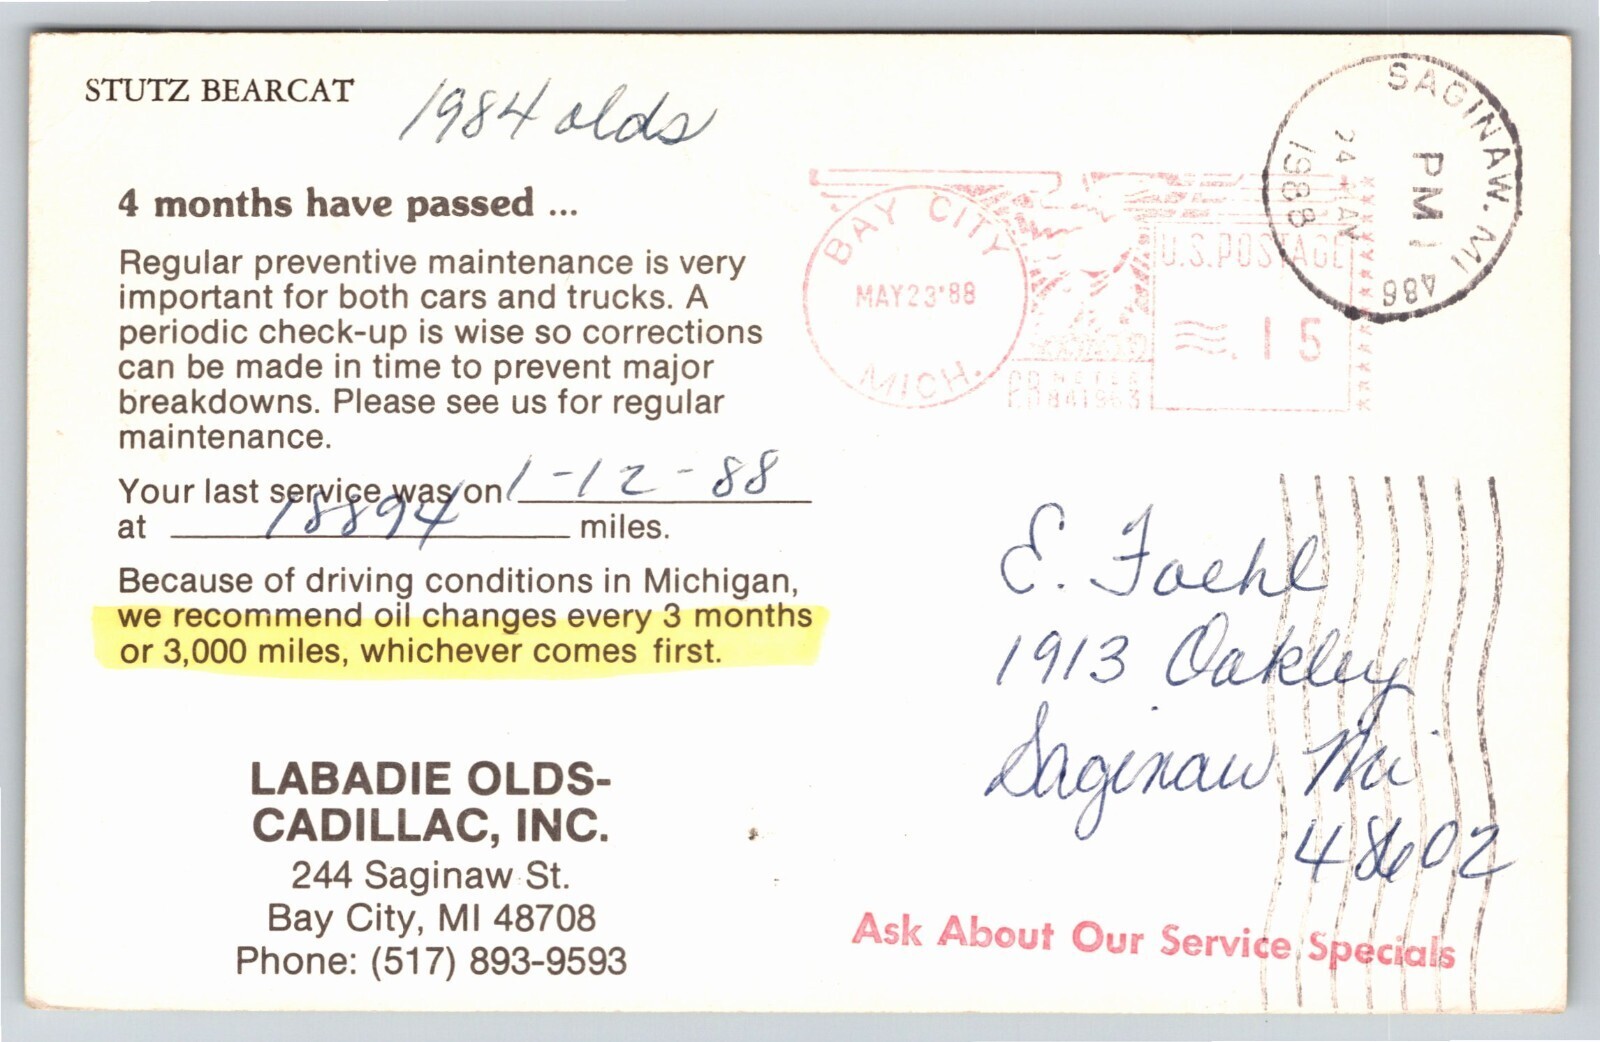 STUTZ BEARCAT
1984 olds
4 months have passed ...
Regular preventive maintenance is very
important for both cars and trucks. A
periodic check-up is wise so corrections
can be made in time to prevent major
breakdowns. Please see us for regular
maintenance.
Your last service was on 1-12-88
at 18894 miles.
Because of driving conditions in Michigan,
we recommend oil changes every 3 months
or 3,000 miles, whichever comes first.
LABADIE OLDS-
CADILLAC, INC.
244 Saginaw St.
Bay City, MI 48708
Phone: (517) 893-9593
BAY CITY
MAY23'88
MICH.
U.S.POSTAGE
.15
SAGINAW, MI 486
PM
1988
E. Foehl
1913 Oakley
Saginaw Mi
48602
Ask About Our Service Specials